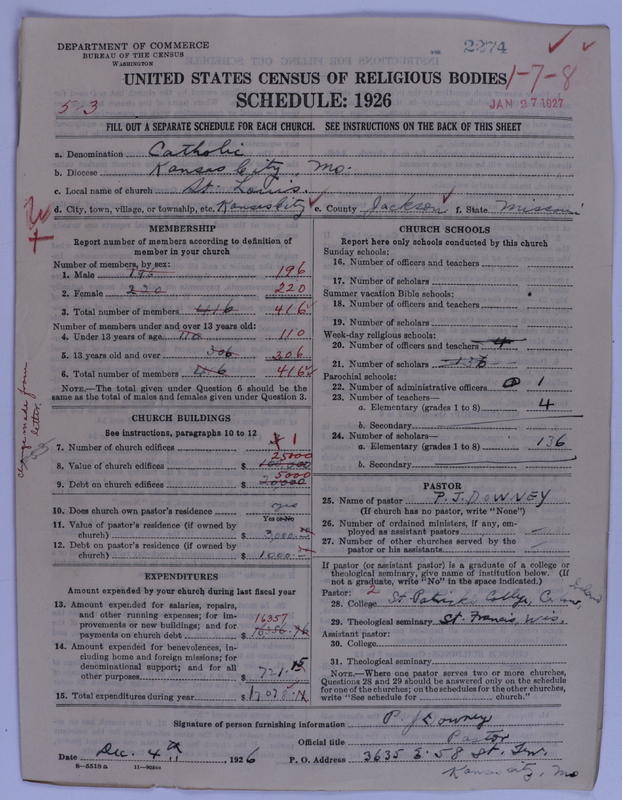 DEPARTMENT OF COMMERCE
BUREAU OF THE CENSUS
WASHINGTON
2274
UNITED STATES CENSUS OF RELIGIOUS BODIES
1-7-8
SCHEDULE: 1926
JAN 27 1927
FILL OUT A SEPARATE SCHEDULE FOR EACH CHURCH. SEE INSTRUCTIONS ON THE BACK OF THIS SHEET
a. Denomination Catholic
b. Diocese Kansas City, Mo.
c. Local name of church St. Louis.
d. City, town, village, or township, etc. Kansas City e. County Jackson f. State Missouri
MEMBERSHIP
Report number of members according to definition of member in your church
Number of members, by sex:
1. Male 196 196
2. Female 220 220
3. Total number of members 416 416
Number of members under and over 13 years old:
4. Under 13 years of age 110 110
5. 13 years old and over 306 306
6. Total number of members 416 416
NOTE.—The total given under Question 6 should be the same as the total of males and females given under Question 3.
change made from letter.
CHURCH BUILDINGS
See instructions, paragraphs 10 to 12
7. Number of church edifices 1
25000
8. Value of church edifices $
5000
9. Debt on church edifices $ 20000
10. Does church own pastor's residence yes
Yes or No
11. Value of pastor's residence (if owned by church) $ 3,000.—
12. Debt on pastor's residence (if owned by church) $ 1000.—
EXPENDITURES
Amount expended by your church during last fiscal year
13. Amount expended for salaries, repairs, and other running expenses; for improvements or new buildings; and for payments on church debt $ 16357 16356.96
14. Amount expended for benevolences, including home and foreign missions; for denominational support; and for all other purposes $ 721.15
15. Total expenditures during year $ 17078.11
CHURCH SCHOOLS
Report here only schools conducted by this church
Sunday schools:
16. Number of officers and teachers
17. Number of scholars
Summer vacation Bible schools:
18. Number of officers and teachers
19. Number of scholars
Week-day religious schools:
20. Number of officers and teachers 4
21. Number of scholars 136
Parochial schools:
22. Number of administrative officers 1
23. Number of teachers—
a. Elementary (grades 1 to 8) 4
b. Secondary
24. Number of scholars—
a. Elementary (grades 1 to 8) 136
b. Secondary
PASTOR
25. Name of pastor P. J. DOWNEY
(If church has no pastor, write "None")
26. Number of ordained ministers, if any, employed as assistant pastors —
27. Number of other churches served by the pastor or his assistants
If pastor (or assistant pastor) is a graduate of a college or theological seminary, give name of institution below. (If not a graduate, write "No" in the space indicated.)
Pastor: 2
28. College St. Patrick's College,
29. Theological seminary St. Francis, Wis.
Assistant pastor:
30. College
31. Theological seminary
NOTE.—Where one pastor serves two or more churches, Questions 28 and 29 should be answered only on the schedule for one of the churches; on the schedules for the other churches, write "See schedule for church."
Signature of person furnishing information P. J. Downey
Official title Pastor
Date Dec. 4th, 1926 P. O. Address 3635 E. 58 St. Ter.
Kansas City, Mo
8—5518a 11—9